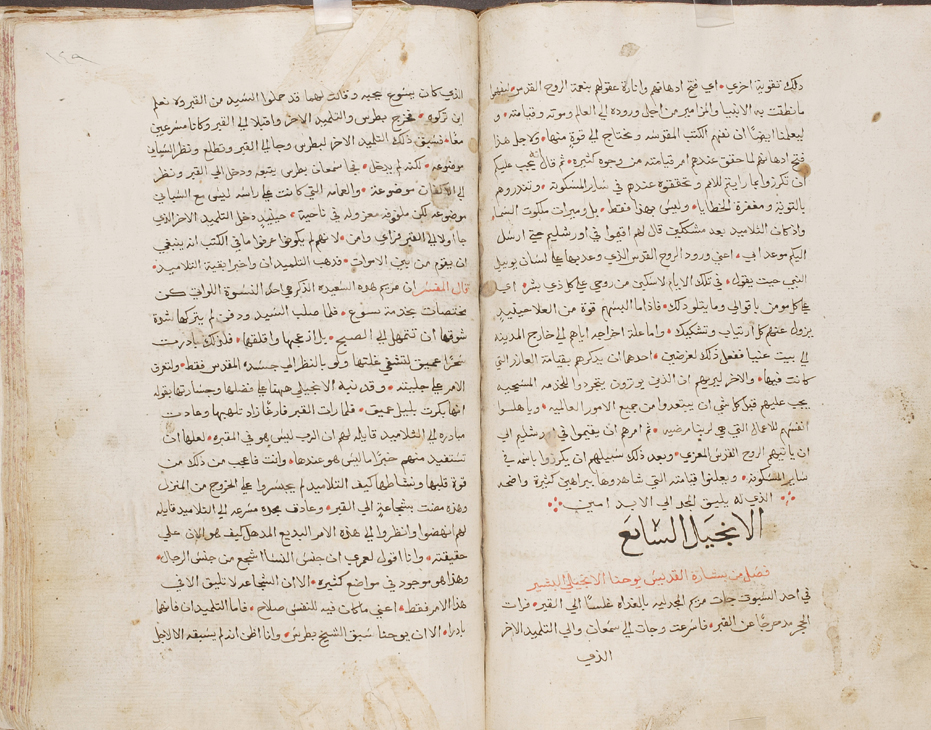 ذلك تقوية اخرى • اي فتح اذهانهم وانارة عقولهم بنعمة الروح القدس • ليفهموا
ما نطقت به الانبيا والمزامير من اجل وروده الى العالم وموته وقيامته • و
ليعلمنا ايضًا ان نفهم الكتب المقدسه ونحتاج الى قوةٍ منها • ولاجل هذا
فتح اذهانهم لما حقق عندهم امر قيامته من وجوه كثيره • ثم قال يجب عليكم
ان تكرزوا بما رايتم للامم وتحققوه عندهم في ساير المسكونه • وتنذروهم
بالتوبة ومغفرة الخطايا • وليس بهذا فقط • بل وميرات ملكوت السما
واذ كان التلاميد بعد مشككين قال لهم اقيموا في اورشليم حتى ارسل
اليكم موعد ابي • اعني ورود الروح القدس الذي وعد بها على لسان يوييل
النبي حيت يقول • في تلك الايام لاسكبن من روحي على كل ذي بشر • اي
على كل مومن باقوالي وما يتلو ذلك • فاذا ما البستهم قوة من العلا حينيدٍ
يزول عنهم كل ارتياب وتشكيك • واما علة اخراجه اياهم الى خارج المدينه
الى بيت عنيا ففعل ذلك لغرضين • احدهما ان يذكرهم بقيامة العازر التي
كانت فيها • والاخر ليريهم ان الذين يوثرون يتجردوا للخدمه المسيحيه
يجب عليهم قبل كل شي ان يبتعدوا من جميع الامور العالميه • ويا هلوا
انفسهم للاعمال التي هي لربنا مرضيه • ثم امرهم ان يقيموا في اورشليم الى
ان ياتيهم الروح القدس المعزي • وبعد ذلك سبيلهم ان يكرزوا باسمه في
ساير المسكونه • ويعلنوا قيامته التي شاهدوها ببراهين كثيرة واضحه
الذي له يليق المجد الى الابد امين
الانجيل السابع
فصل من بشارة القديس يوحنا الانجيلي البشير
في احد السبوت جات مريم المجدليه بالغداه غلسًا الى القبر • فرات
الحجر مدحرجًا عن القبر • فاسرعت وجات الى سمعان والى التلميد الاخر
الذي
١٣٩
الذي كان يسوع يحبه وقالت لهما قد حملوا السيد من القبر ولا نعلم
اين تركوه • فخرج بطرس والتلميد الاخر واقبلا الى القبر وكانا مسرعين
معًا • فسبق ذلك التلميد الاخر لبطرس وجا الى القبر وتطلع ونظر السبابي
موضوعه • لكنه لم يدخل • فجا سمعان بطرس يتبعه ودخل الى القبر ونظر
الى الاكفان موضوعة • والعمامه التي كانت على راسه ليس مع السبابي
موضوعه لكن ملفوفه معزوله في ناحيةٍ • حينيدٍ دخل التلميد الاخر الذي
جا اولا الى القبر فراي وامن • لانهم لم يكونوا عرفوا ما في الكتب انه ينبغي
ان يقوم من بين الاموات • فذهب التلميدان واخبرا بقية التلاميد •
قال المفسر ان مريم هده السعيده الذكر هي احد النسوة اللواتي كن
مختصات بخدمة يسوع • فلما صلب السيد ودفن لم يتركها شدة
شوقها ان تتمهل الى الصبح • بل ازعجها واقلقها • فلذلك بادرت
سحرًا عميق لتشفي غلتها ولو بالنظر الى جسده المقدس فقط • ولتعرف
الامر على جليته • وقد نبه الانجيلي ههنا على فضلها وجسارتها بقوله
انها بكرت بليل عميق • فلما رات القبر فارغًا زاد تلهبها وعادت
مبادره الى التلاميد قايله لهم ان الرب ليس هو في المقبره • لعلها ان
تستفيد منهم خبرًا ما ليس هو عندها • وانت فاعجب من ذلك من
قوة قلبها ونشاطها كيف التلاميد لم يجسروا على الخروج من المنزل
وهذه مضت بشجاعةٍ الى القبر • وعادت مجده مسرعه الى التلاميد قايله
لهم انهضوا وانظروا الى هذه الامر البديع المدهل كيف هو الان على
حقيقته • وانا اقول لعمري ان جنس النسا اشجع من جنس الرجال •
وهذا هو موجود في مواضع كثيره • الا ان الشجاعه لا تليق الا في
هذا الامر فقط • اعني ما كان فيه للنفس صلاح • فاما التلميدان فانهما
بادرا • الا ان يوحنا سبق الشيخ بطرس • وانا اظن انه لم يسبقه الا لاجل